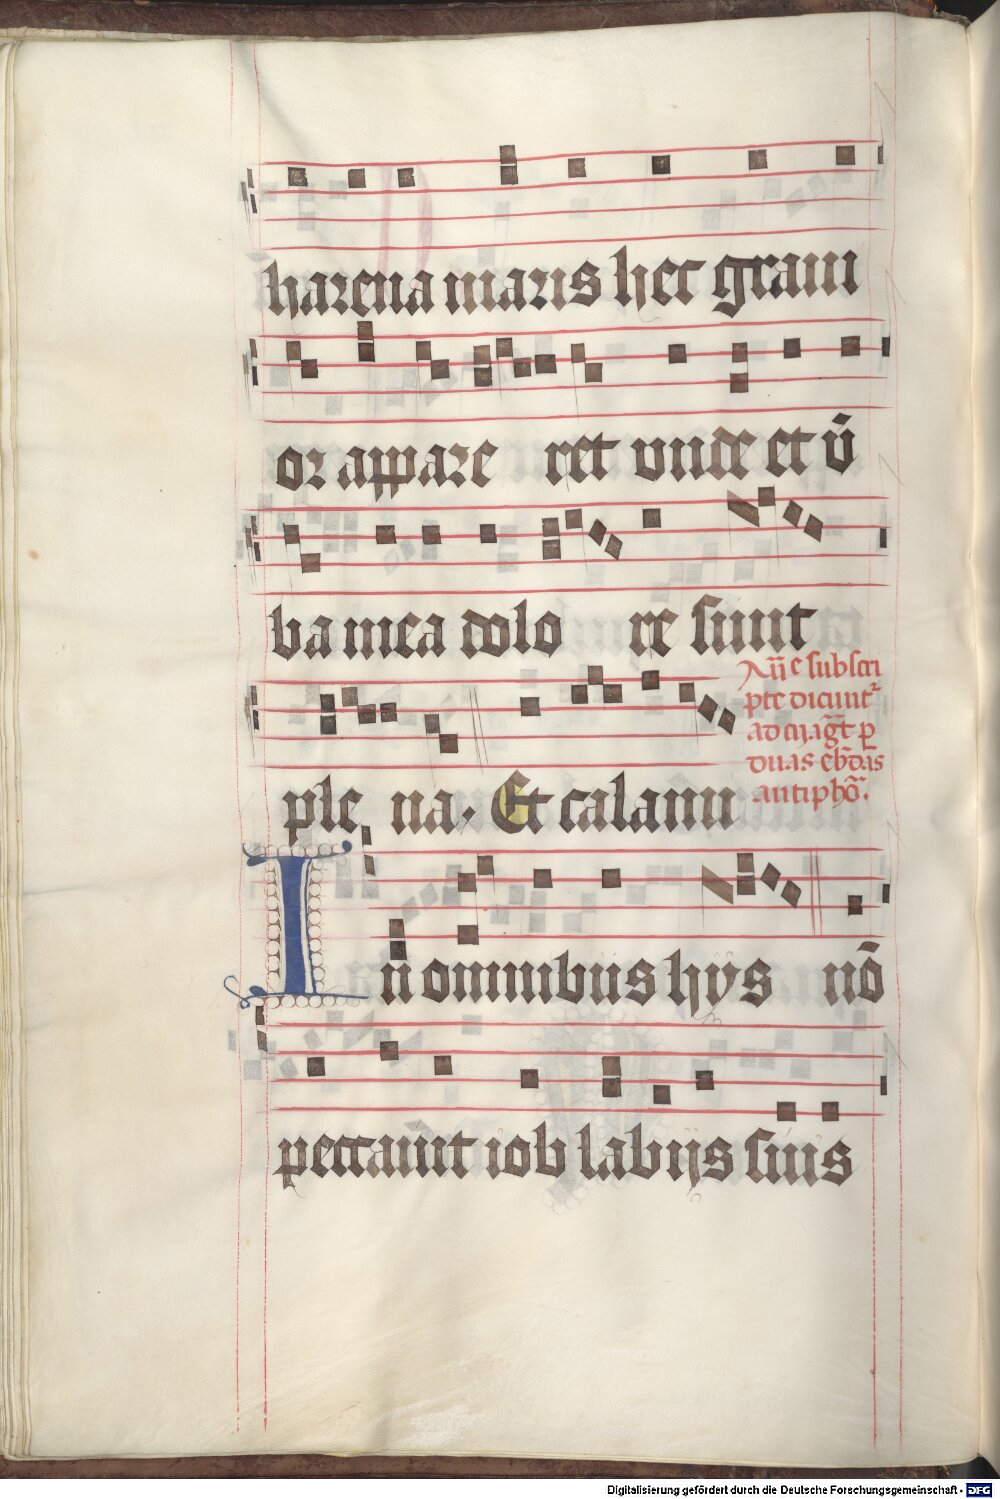 harena maris hec graui
or appare ret unde et ū
ba mea dolo re sunt
ple na. Et calami
Añe subscri
pte dicunt᷑
ad m̄agt̄ p̱
duas eb̄das
antiphō.
In omnibus hys nō
peccauit iob labijs suis
Digitalisierung gefördert durch die Deutsche Forschungsgemeinschaft - DFG